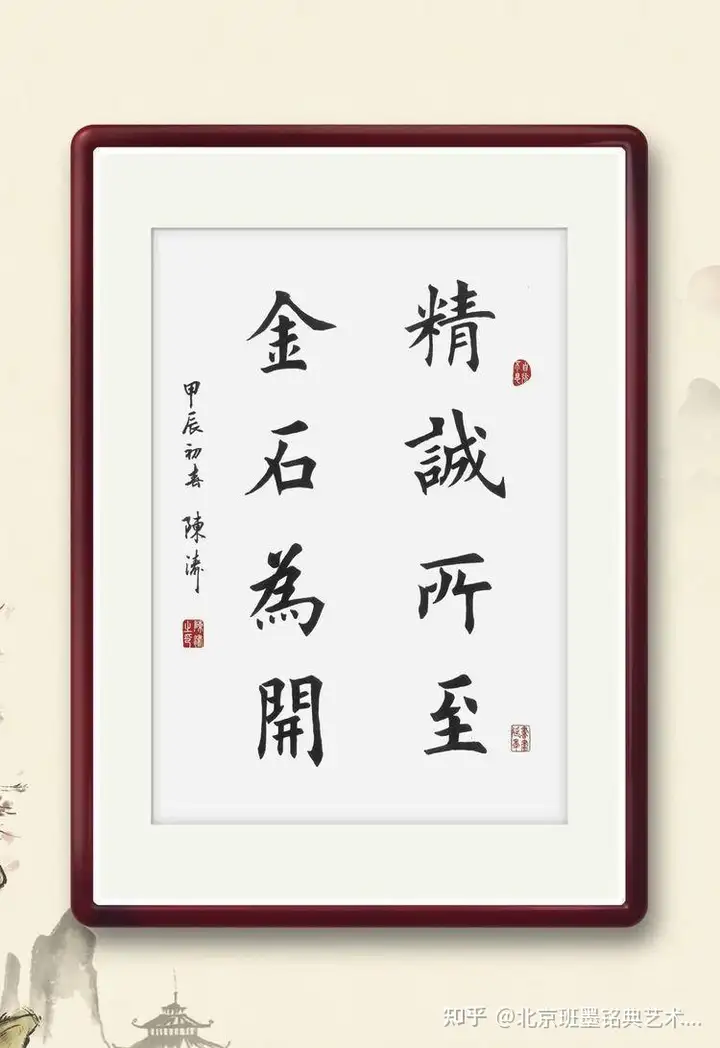 精誠所至
金石為開
甲辰初春 陳濤
知乎 @北京班墨铭典艺术...